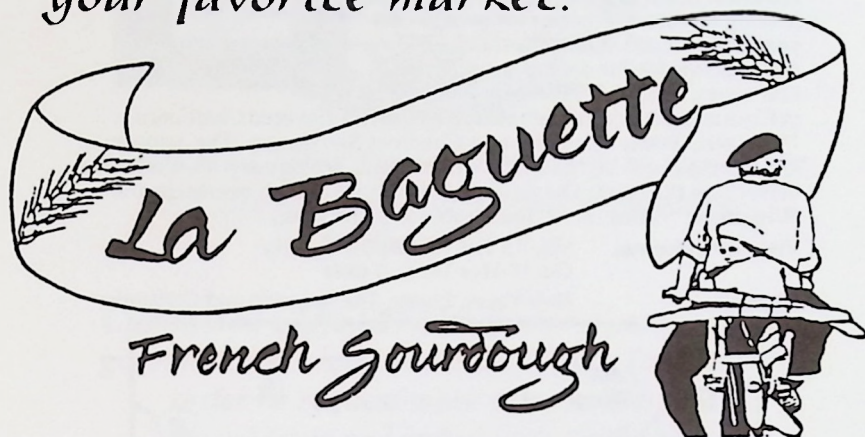 your favorite market.
La Baguette
French Sourdough